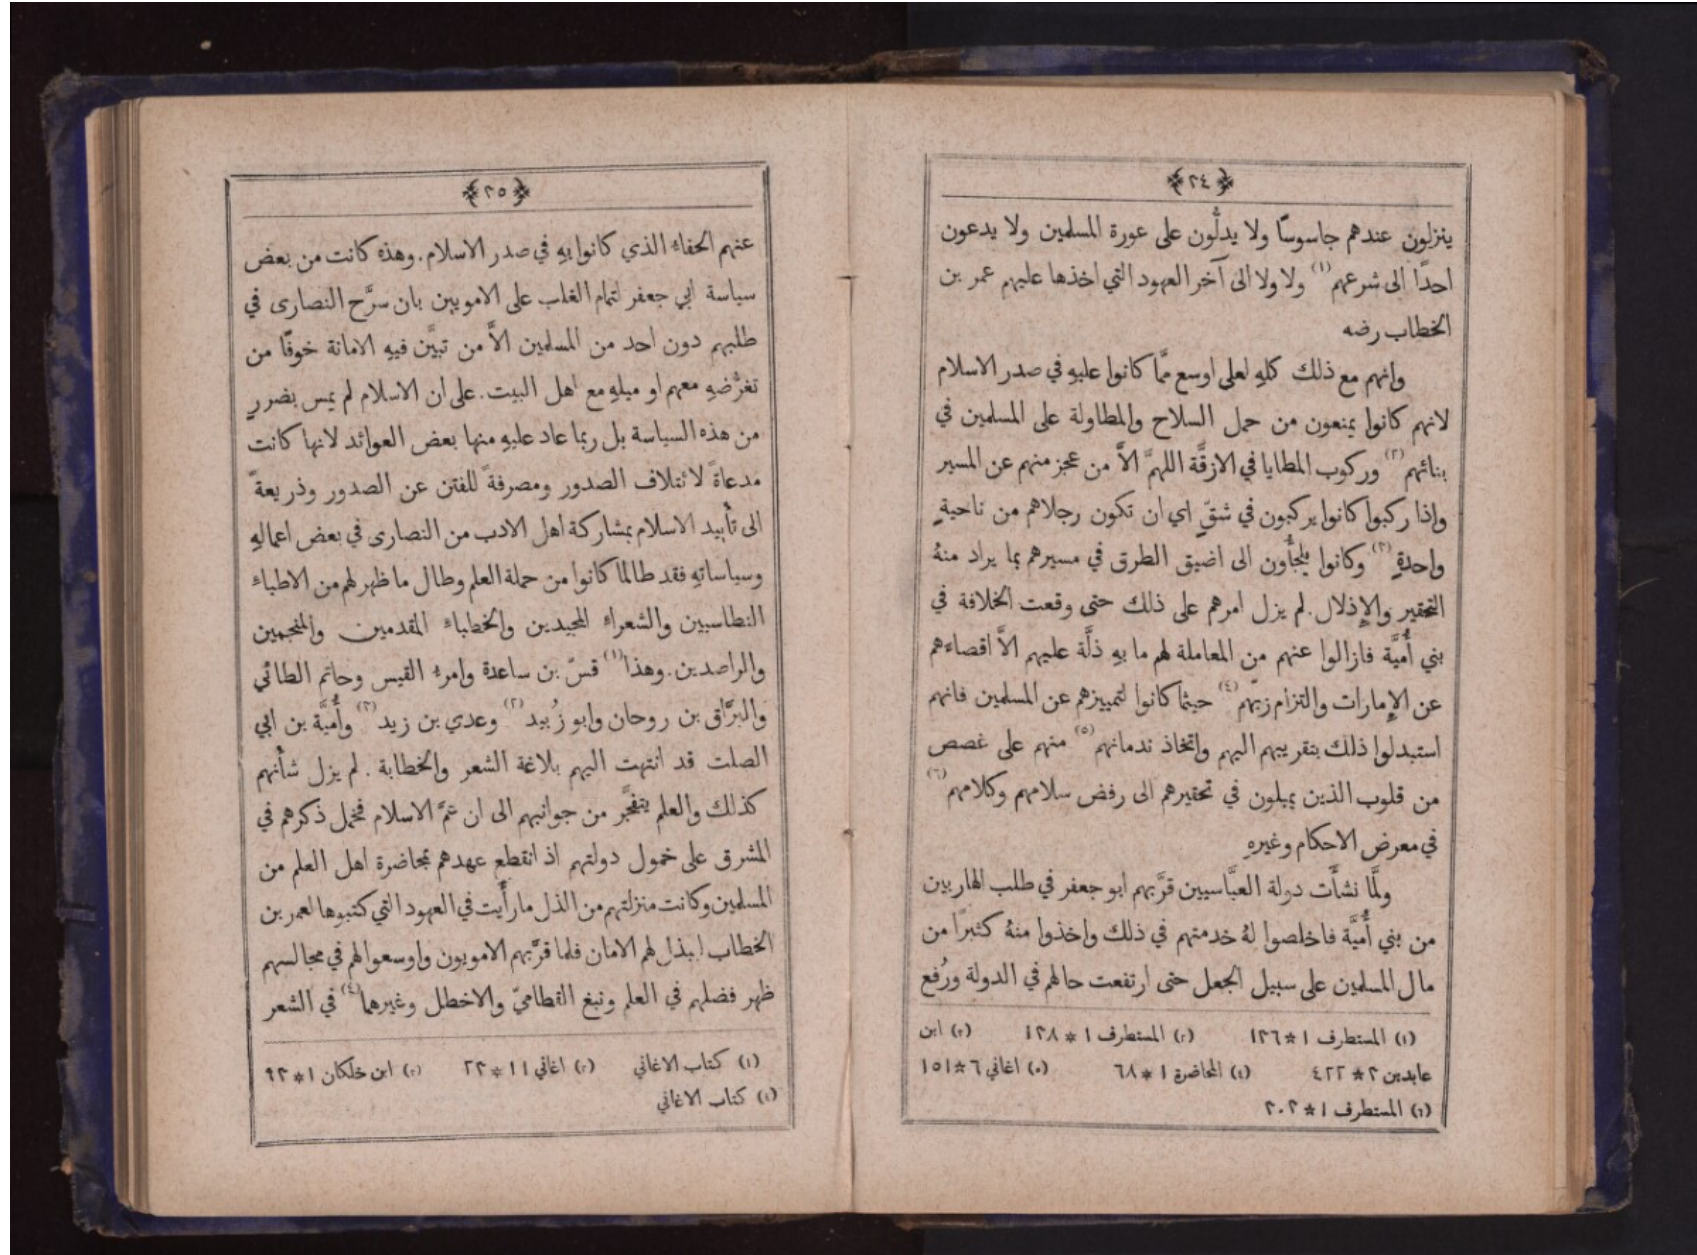 ﴿٢٤﴾
ينزلون عندهم جاسوسًا ولا يدلُّون على عورة المسلمين ولا يدعون
احدًا الى شرعهم (١) ولا ولا الى آخر العهود التي اخذها عليهم عمر بن
الخطاب رضه
وانهم مع ذلك كلهِ لعلى اوسع ممَّا كانوا عليهِ في صدر الاسلام
لانهم كانوا يمنعون من حمل السلاح والمطاولة على المسلمين في
بنائهم (٢) وركوب المطايا في الازقَّة اللهمَّ الاَّ من عجز منهم عن المسير
واذا ركبوا كانوا يركبون في شقٍّ اي ان تكون رجلاهم من ناحيةٍ
واحدةٍ (٣) وكانوا يلجأُون الى اضيق الطرق في مسيرهم بما يراد منهُ
التحقير والإذلال. لم يزل امرهم على ذلك حتى وقعت الخلافة في
بني أُميَّة فازالوا عنهم من المعاملة لهم ما بهِ ذلَّة عليهم الاَّ اقصاءهم
عن الإمارات والتزام زيّهم (٤) حيثما كانوا لتمييزهم عن المسلمين فانهم
استبدلوا ذلك بتقريبهم اليهم واتخاذ ندمانهم (٥) منهم على غصص
من قلوب الذين يميلون في تحقيرهم الى رفض سلامهم وكلامهم (٦)
في معرض الاحكام وغيرهِ
ولمَّا نشأَت دولة العبَّاسيين قرَّبهم ابو جعفر في طلب الهاربين
من بني أُميَّة فاخلصوا لهُ خدمتهم في ذلك واخذوا منهُ كثيرًا من
مال المسلمين على سبيل الجعل حتى ارتفعت حالهم في الدولة ورُفع
(١) المستطرف ١ * ١٣٦ (٢) المستطرف ١ * ١٣٨ (٣) ابن
عابدين ٣ * ٤٢٢ (٤) المحاضرة ١ * ٦٨ (٥) اغاني ٦ * ١٥١
(٦) المستطرف ١ * ٢٠٢
﴿٢٥﴾
عنهم الخفاء الذي كانوا بهِ في صدر الاسلام. وهذه كانت من بعض
سياسة ابي جعفر لتمام الغلب على الامويين بان سرَّح النصارى في
طلبهم دون احد من المسلمين الاَّ من تبيَّن فيهِ الامانة خوفًا من
تغرُّضهِ معهم او ميلهِ مع اهل البيت. على ان الاسلام لم يمس بضررٍ
من هذه السياسة بل ربما عاد عليهِ منها بعض العوائد لانها كانت
مدعاةً لائتلاف الصدور ومصرفةً للفتن عن الصدور وذريعةً
الى تأييد الاسلام بمشاركة اهل الادب من النصارى في بعض اعمالهِ
وسياساتهِ فقد طالما كانوا من حملة العلم وطال ما ظهر لهم من الاطباء
النطاسيين والشعراء المجيدين والخطباء المقدمين والمنجمين
والراصدين. وهذا (١) قسّ بن ساعدة وامرء القيس وحاتم الطائي
والبرَّاق بن روحان وابو زُبيد (٢) وعدي بن زيد (٣) وأُميَّة بن ابي
الصلت قد انتهت اليهم بلاغة الشعر والخطابة. لم يزل شأنهم
كذلك والعلم يتفجَّر من جوانبهم الى ان عمَّ الاسلام فخمل ذكرهم في
المشرق على خمول دولتهم اذ انقطع عهدهم بمحاضرة اهل العلم من
المسلمين وكانت منزلتهم من الذل ما رأَيت في العهود التي كتبوها لعمر بن
الخطاب ليبذل لهم الامان فلما قرَّبهم الامويون واوسعوا لهم في مجالسهم
ظهر فضلهم في العلم ونبغ القطاميّ والاخطل وغيرهما (٤) في الشعر
(١) كتاب الاغاني (٢) اغاني ١١ * ٢٣ (٣) ابن خلكان ١ * ٩٣
(٤) كتاب الاغاني